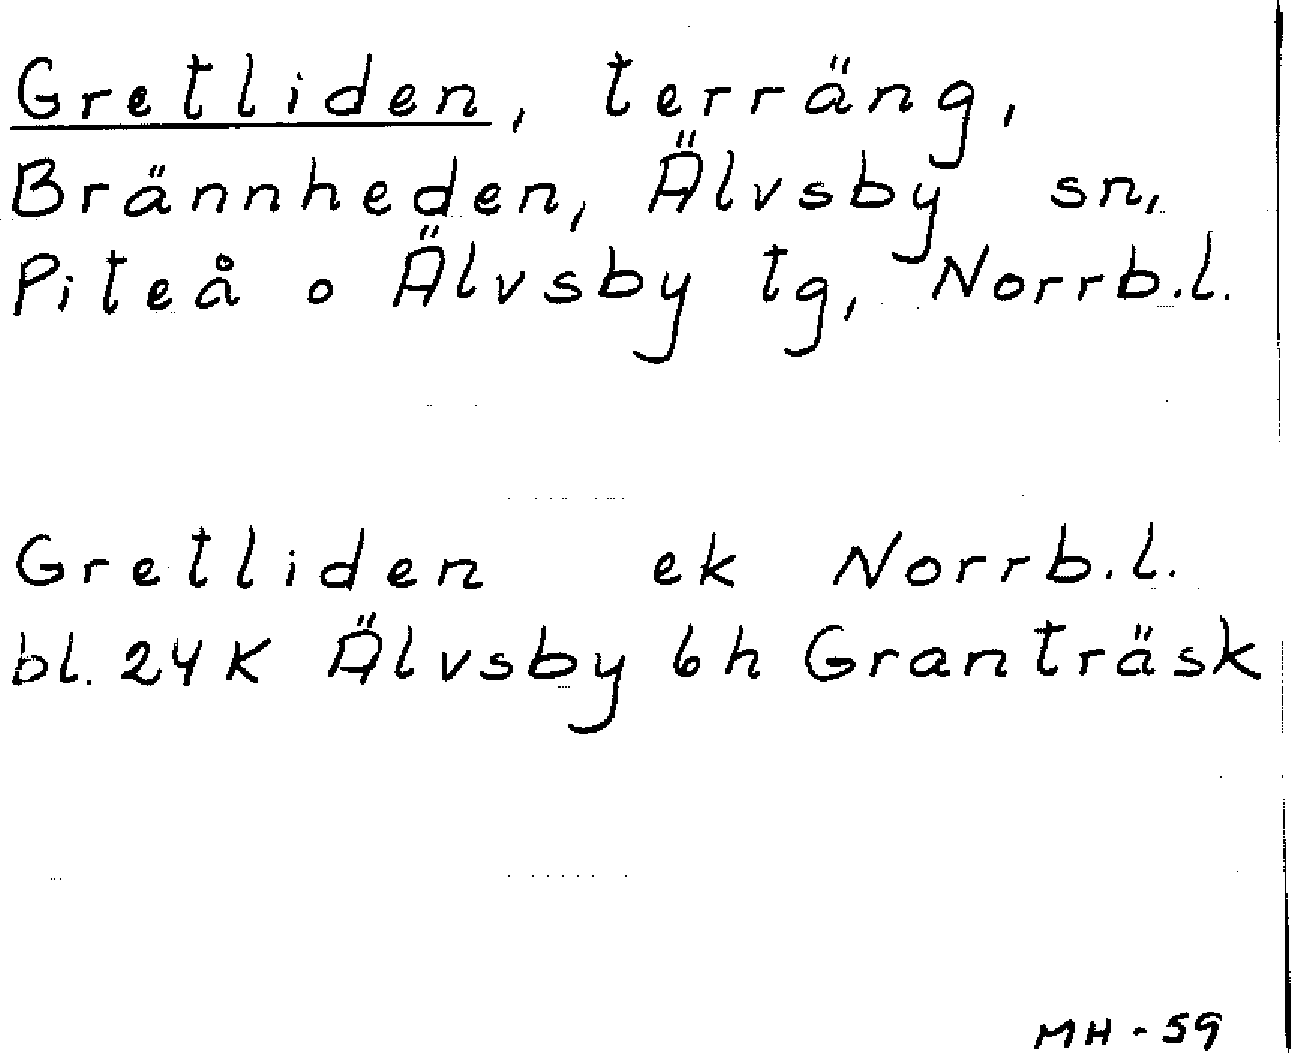 Gretliden, terräng,
Brännheden, Älvsby sn,
Piteå o Älvsby tg, Norrb.l.
Gretliden ek Norrb.l.
bl. 24K Älvsby 6h Granträsk
MH-59